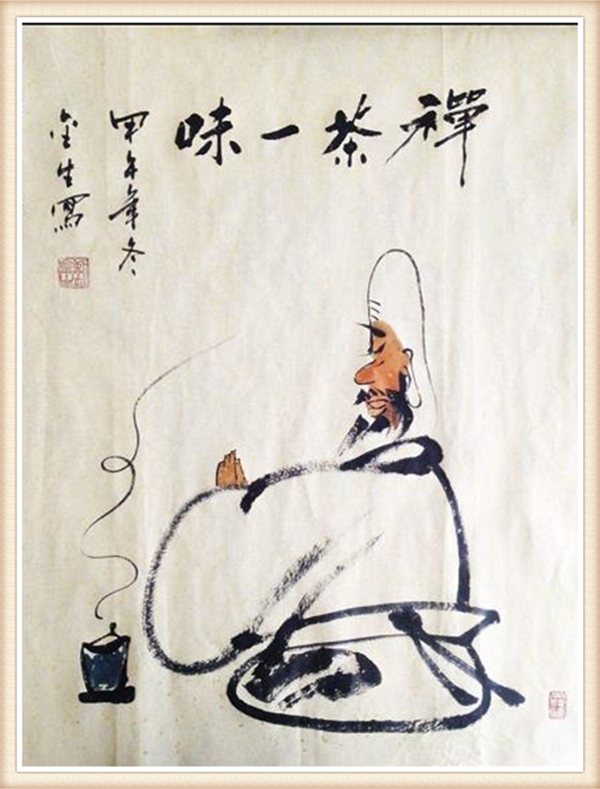 禪茶一味
甲午年冬
金生寫